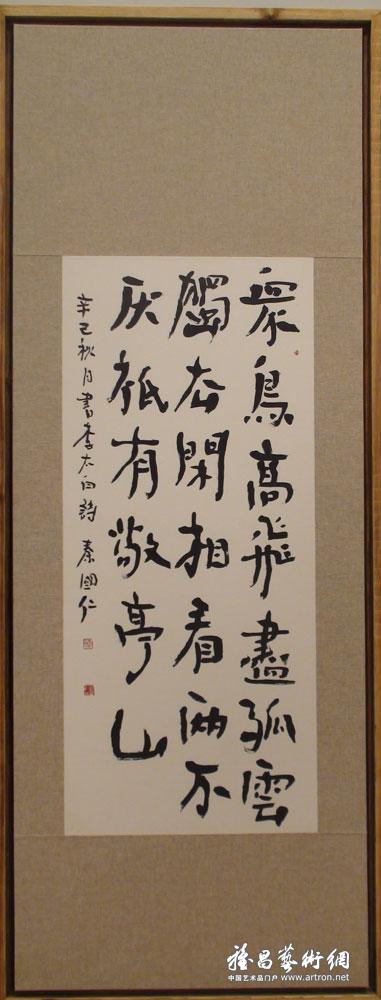 衆鳥高飛盡孤雲
獨去閑相看兩不
厌祇有敬亭山
辛巳秋月書李太白詩 秦國仁
雅昌藝術網
中国艺术品门户 www.artron.net